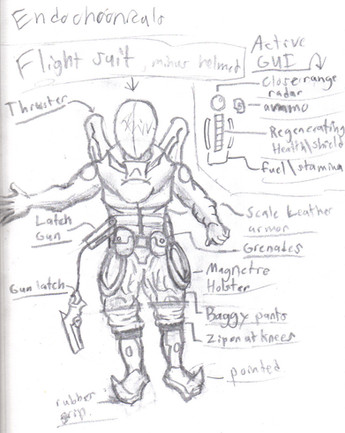 Flight suit, minus helmet
Active
GUI
close range
radar
ammo
Regenerating
Health\shield
fuel\stamina
Thruster
Latch
Gun
Gun latch
Scale leather
armor
Grenades
Magnetre
Holster
Baggy pants
Zip on at knees
pointed
rubber
grip.